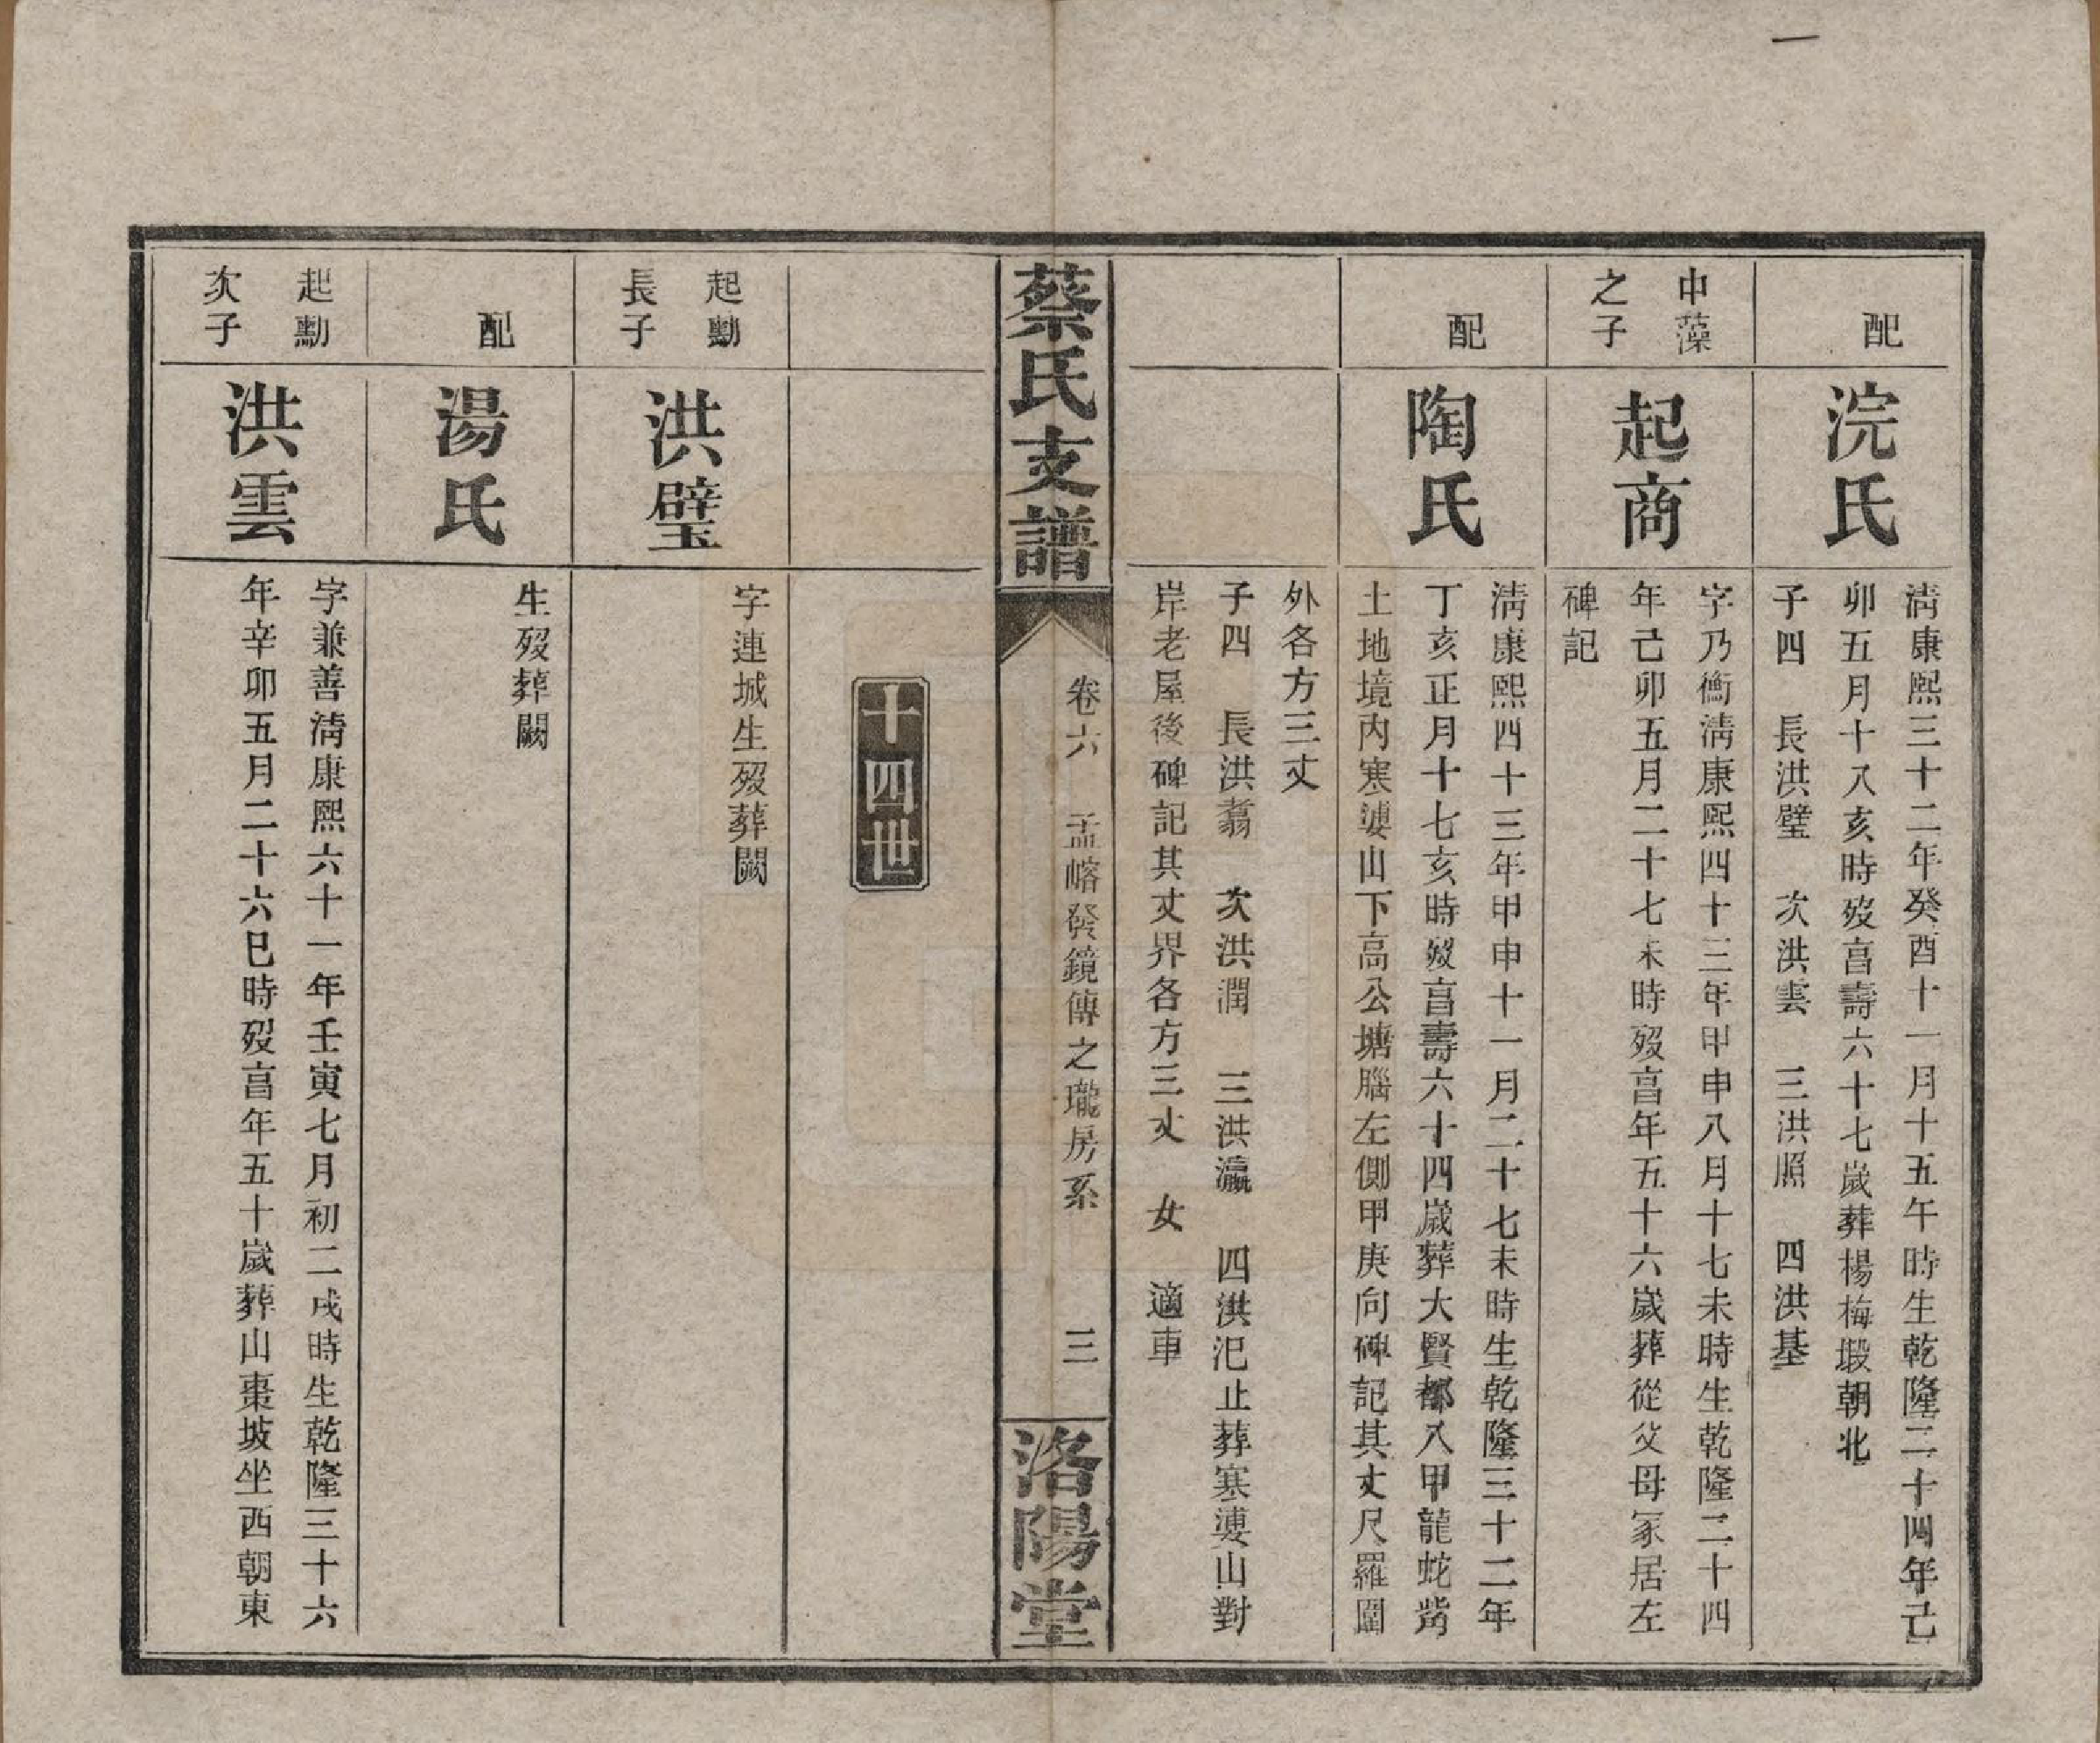 一
配
浣氏
清康熙三十二年癸酉十一月十五午時生乾隆二十四年己
卯五月十八亥時歿亯壽六十七歲葬楊梅塅朝北
子四　長洪璧　次洪雲　三洪照　四洪基
中藻
之子
起商
字乃衡清康熙四十三年甲申八月十七未時生乾隆二十四
年己卯五月二十七未時歿亯年五十六歲葬從父母冢居左
碑記
配
陶氏
清康熙四十三年甲申十一月二十七未時生乾隆三十二年
丁亥正月十七亥時歿亯壽六十四歲葬大賢都八甲龍蛇嘴
土地境内寒婆山下高公塘腦左側甲庚向碑記其丈尺羅圍
外各方三丈
子四　長洪翥　次洪潤　三洪瀛　四洪汜止葬寒婆山對
岸老屋後碑記其丈界各方三丈　女　適車
蔡氏支譜
卷六　孟㟷發鏡傳之瓏房系　三
洛陽堂
十四世
起勳
長子
洪璧
字連城生歿葬闕
配
湯氏
生歿葬闕
起勳
次子
洪雲
字兼善清康熙六十一年壬寅七月初二戌時生乾隆三十六
年辛卯五月二十六巳時歿亯年五十歲葬山棗坡坐西朝東